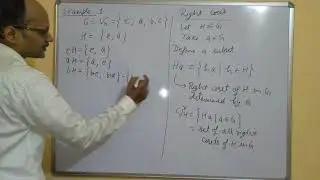 Example 1
G = V₄ = {e, a, b, c}
H = {e, a}
eH = {e, a}
aH = {a, e}
bH = {be, ba} =
Right coset
Let H ≤ G
Take a ∈ G
Define a subset
Ha = {ha | h ∈ H}
↳ Right coset of H in G
determined by
= {Ha | a ∈ G}
= set of all right
cosets of H in G